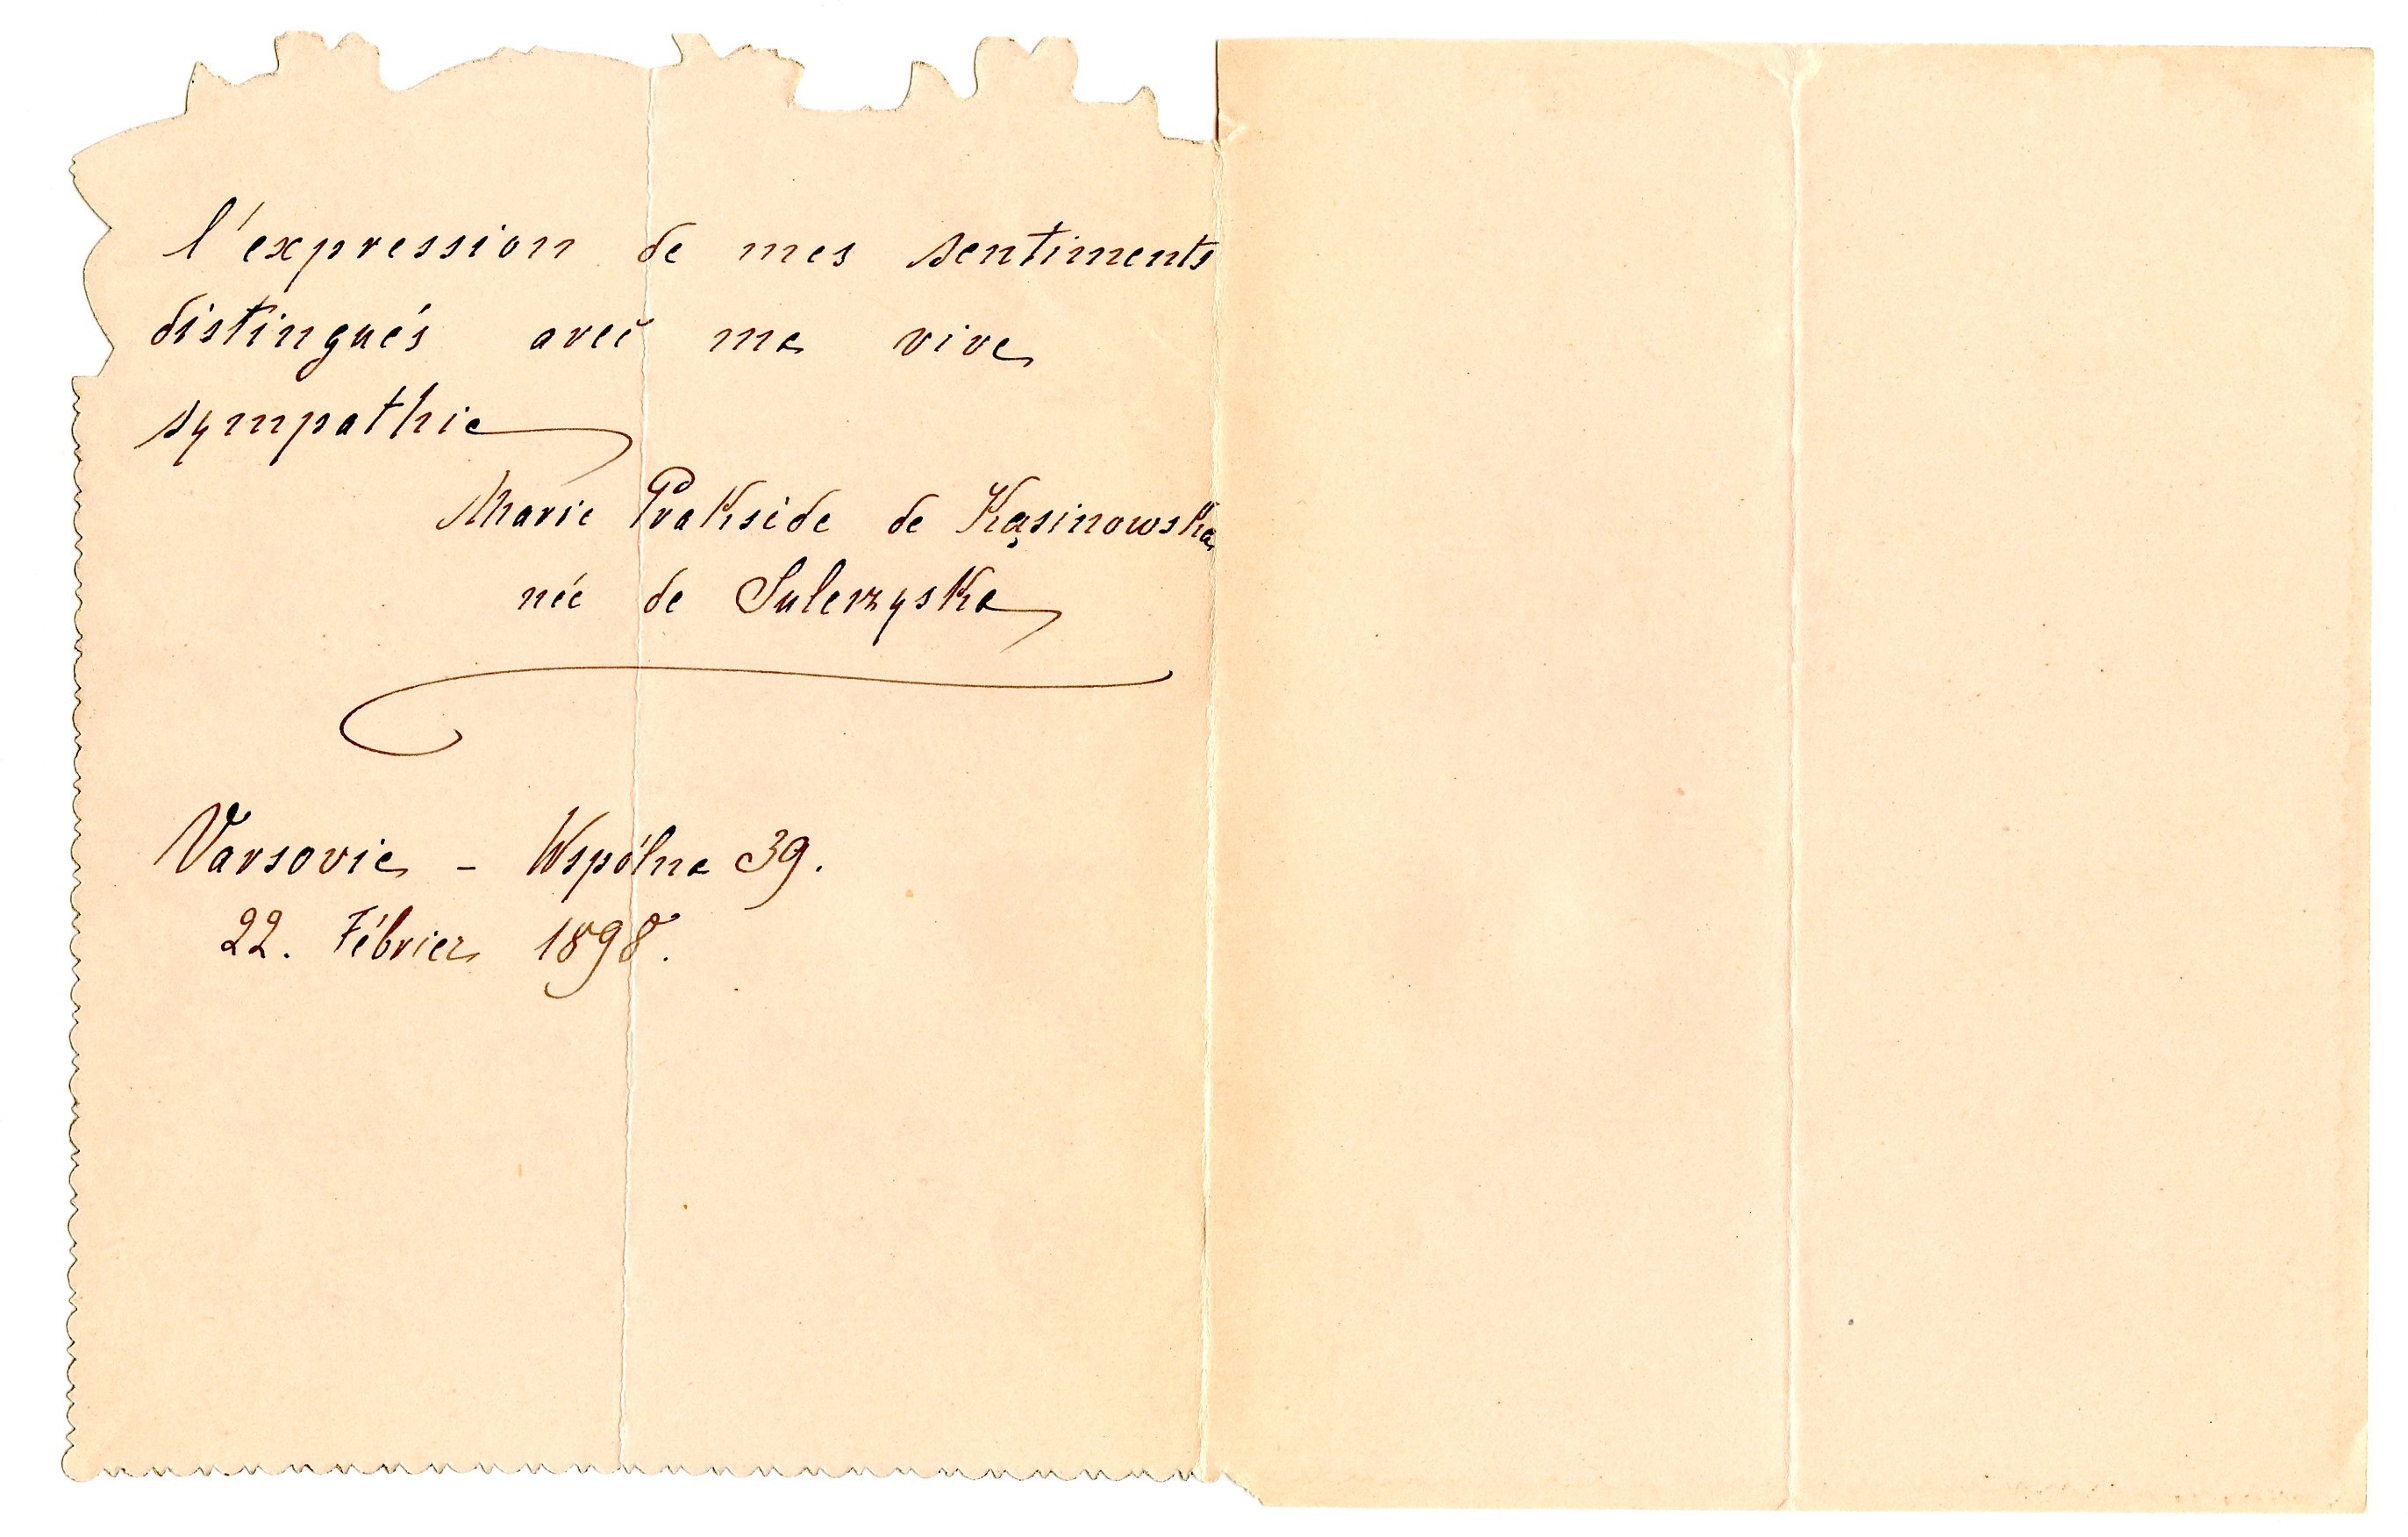 l'expression de mes sentiments
distingués avec ma vive
sympathie
Marie Prakside de Kąsinowska
née de Sulerzyska
Varsovie - Wspólna 39.
22. Février 1898.